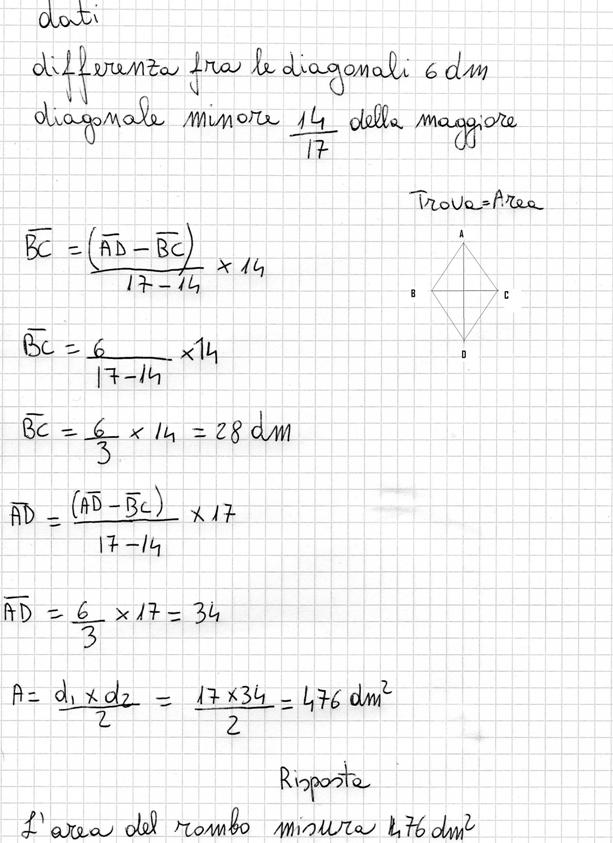 dati
differenza fra le diagonali 6 dm
diagonale minore 14/17 della maggiore
Trova = Area
A
B
C
D
BC = (AD - BC)/(17 - 14) × 14
BC = 6/(17-14) × 14
BC = 6/3 × 14 = 28 dm
AD = (AD - BC)/(17-14) × 17
AD = 6/3 × 17 = 34
A = d1 × d2/2 = 17 × 34/2 = 476 dm²
Risposta
L'area del rombo misura 476 dm²